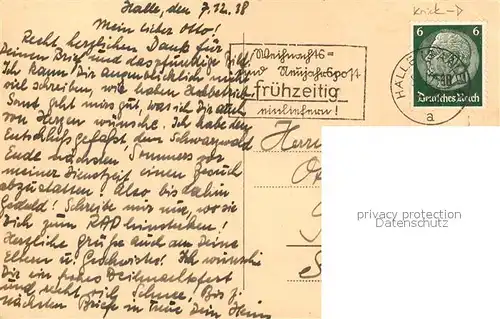 Halle, den 7.12.38
Mein lieber Otto!
Recht herzlichen Dank für
Deinen Brief und das Bild.
Ich kann Dir augenblicklich nicht
viel schreiben, wir haben
Sonst geht mirs gut, was ich Dir auch
von Herzen wünsche. Ich habe den
Entschluß gefaßt dem Schwarzwald
Ende nächsten Sommers vor
meiner Dienstzeit einen Besuch
abzustatten! Also bis dahin
Geduld! Schreibe mir nur, wo sie
Dich zum RAD hinstecken!
Herzliche Grüße auch an Deine
Eltern u. Geschwister! Ich wünsche
Dir ein frohes Weihnachtsfest
und recht viel Schnee! Bis z.
nächsten Briefe in Treue Dein Heinz
Weihnachts-
und Neujahrspost
frühzeitig
einliefern!
HALLE
a
6 6
Deutsches Reich
Herrn
privacy protection
Datenschutz